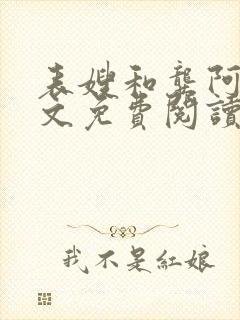 表嫂和龔阿
文免費閱讀
我不是紅娘